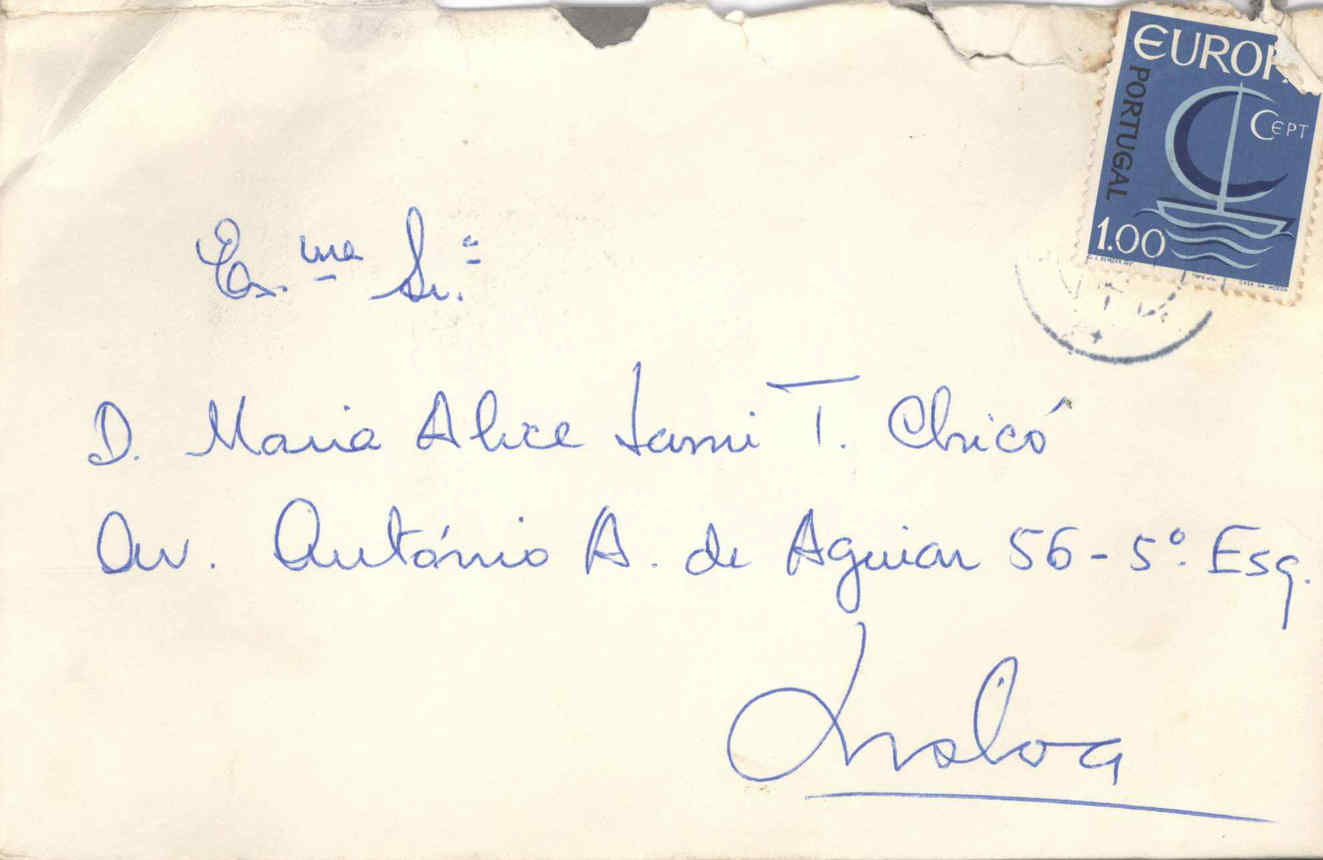 EUROP
PORTUGAL
CEPT
1.00
Ex.ma Sr.a
D. Maria Alice Lami T. Chicó
Av. António A. de Aguiar 56 - 5º. Esq.
Lisboa